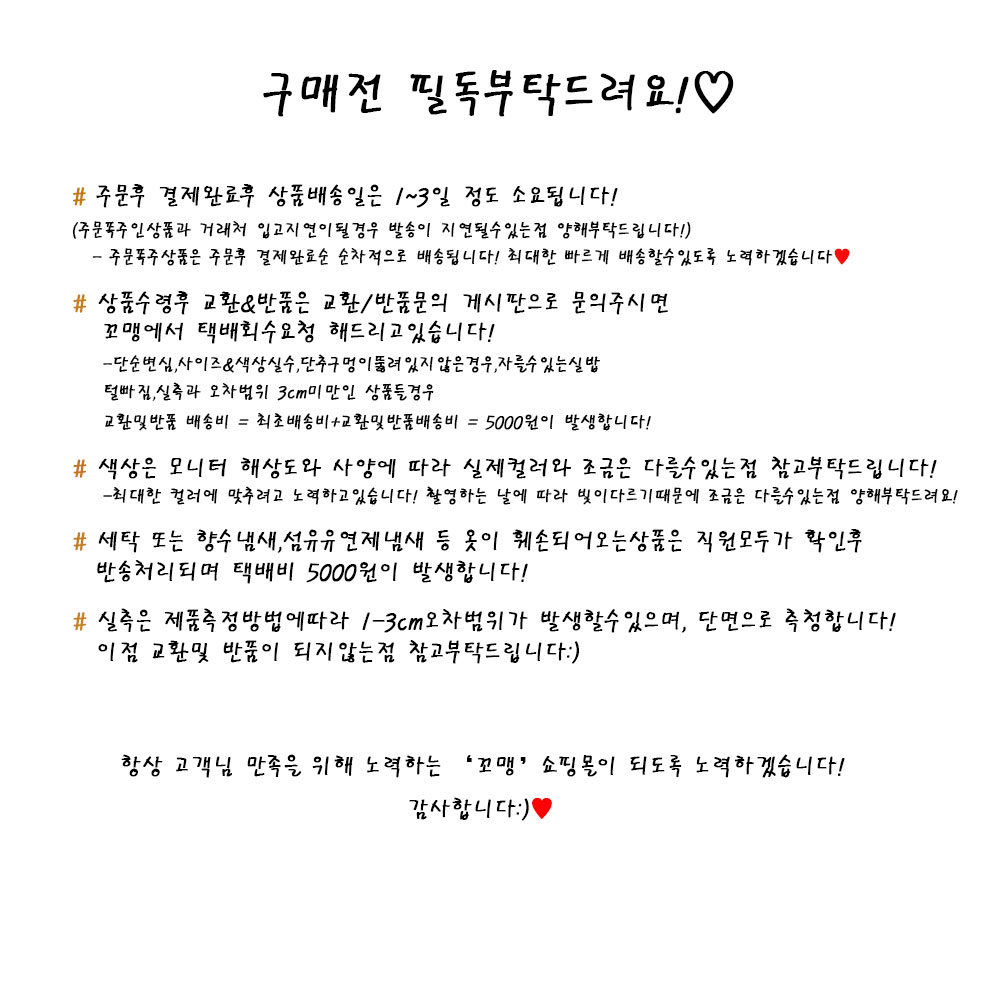 구매전 필독부탁드려요!♡
# 주문후 결제완료후 상품배송일은 1~3일 정도 소요됩니다!
(주문폭주인상품과 거래처 입고지연이될경우 발송이 지연될수있는점 양해부탁드립니다!)
- 주문폭주상품은 주문후 결제완료순 순차적으로 배송됩니다! 최대한 빠르게 배송할수있도록 노력하겠습니다♥
# 상품수령후 교환&반품은 교환/반품문의 게시판으로 문의주시면
꼬맹에서 택배회수요청 해드리고있습니다!
-단순변심,사이즈&색상실수,단추구멍이뚫려있지않은경우,자를수있는실밥
털빠짐,실측과 오차범위 3cm미만인 상품들경우
교환및반품 배송비 = 최초배송비+교환및반품배송비 = 5000원이 발생합니다!
# 색상은 모니터 해상도와 사양에 따라 실제컬러와 조금은 다를수있는점 참고부탁드립니다!
-최대한 컬러에 맞추려고 노력하고있습니다! 촬영하는 날에 따라 빛이다르기때문에 조금은 다를수있는점 양해부탁드려요!
# 세탁 또는 향수냄새,섬유유연제냄새 등 옷이 훼손되어오는상품은 직원모두가 확인후
반송처리되며 택배비 5000원이 발생합니다!
# 실측은 제품측정방법에따라 1-3cm오차범위가 발생할수있으며, 단면으로 측청합니다!
이점 교환및 반품이 되지않는점 참고부탁드립니다:)
항상 고객님 만족을 위해 노력하는 '꼬맹' 쇼핑몰이 되도록 노력하겠습니다!
감사합니다:)♥